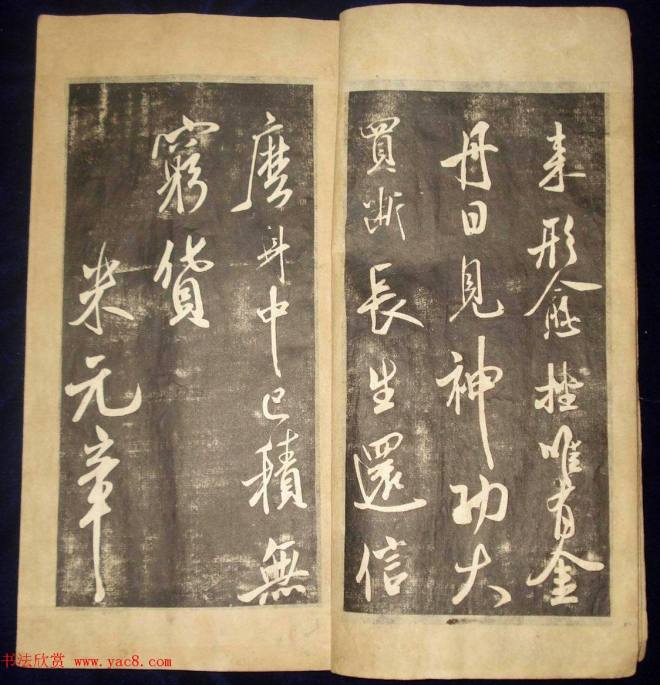 来形挫唯有金
丹日見神功大
買斷長生還信
麼舟中已積無
窮貨
米元章
书法欣赏 www.yac8.com